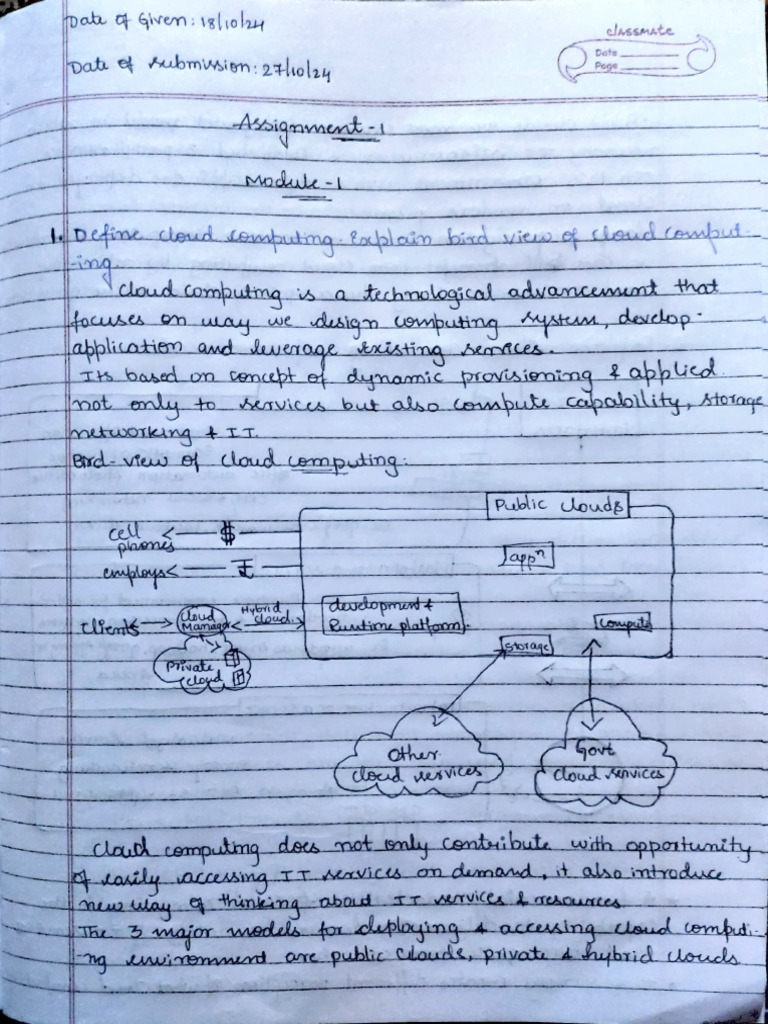 Date of Given: 18/10/24
classmate
Date
Page
Date of submission: 27/10/24
Assignment-1
Module-1
1. Define cloud computing. Explain bird view of cloud comput-
-ing
cloud computing is a technological advancement that
focuses on way we design computing system, develop.
application and leverage existing services.
Its based on concept of dynamic provisioning & applied.
not only to services but also compute capability, storage
networking & IT.
Bird-view of cloud computing:
Public clouds
cell
phones
$
appⁿ
employs
₹
development &
Runtime platform.
clients
cloud
Manager
Hybrid
cloud
compute
storage
Private
cloud
Other
cloud services
Govt
cloud services
cloud computing does not only contribute with opportunity
of easily accessing IT services on demand, it also introduce
new way of thinking about IT services & resources
The 3 major models for deploying & accessing cloud computi-
-ng environment are public clouds, private & hybrid clouds